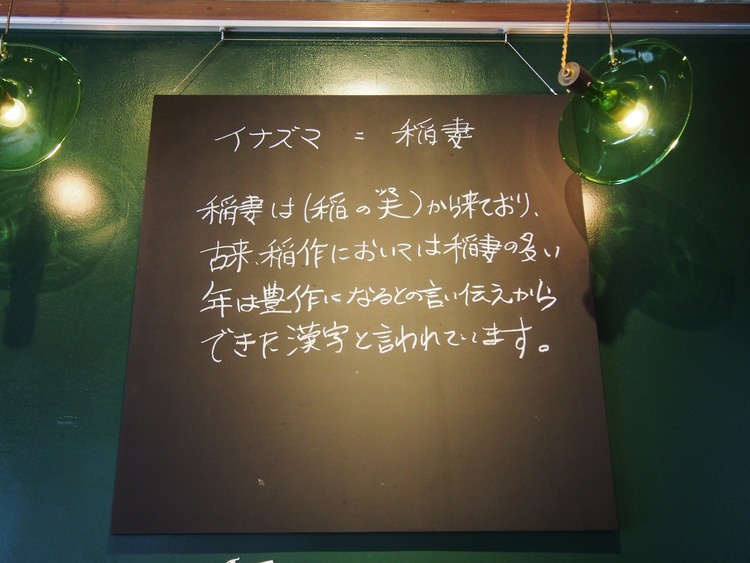 イナズマ = 稲妻
稲妻は(稲の)から来ており、
古来、稲作においては稲妻の多い
年は豊作になるとの言い伝えから
できた漢字と言われています。